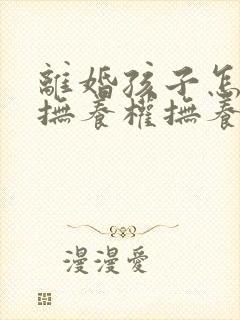 離婚孩子怎
撫養權撫養
漫漫愛